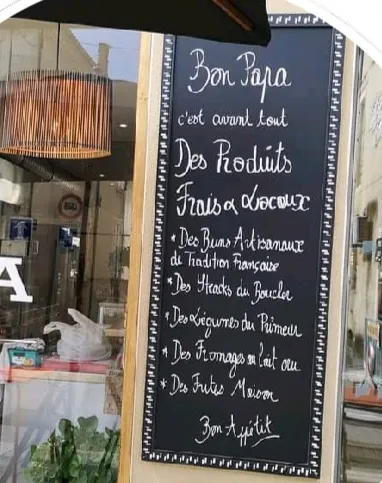 Bon Papa
c'est avant tout
Des Produits
Frais & Locaux
* Des Buns Artisanaux
de Tradition Française
* Des Steacks du Boucher
* Des Légumes du Primeur
* Des Fromages au lait cru
* Des Frites Maison
Bon Appétit
A